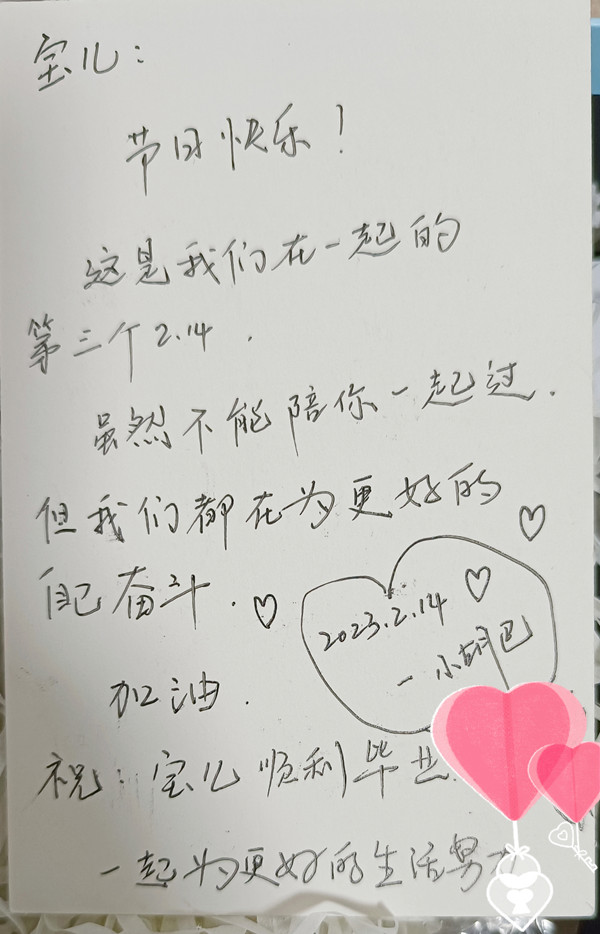 宝儿：
节日快乐！
这是我们在一起的
第三个2.14.
虽然不能陪你一起过.
但我们都在为更好的
自己奋斗.
2023.2.14
一小胡巴
加油.
祝：宝儿顺利毕业.
一起为更好的生活努